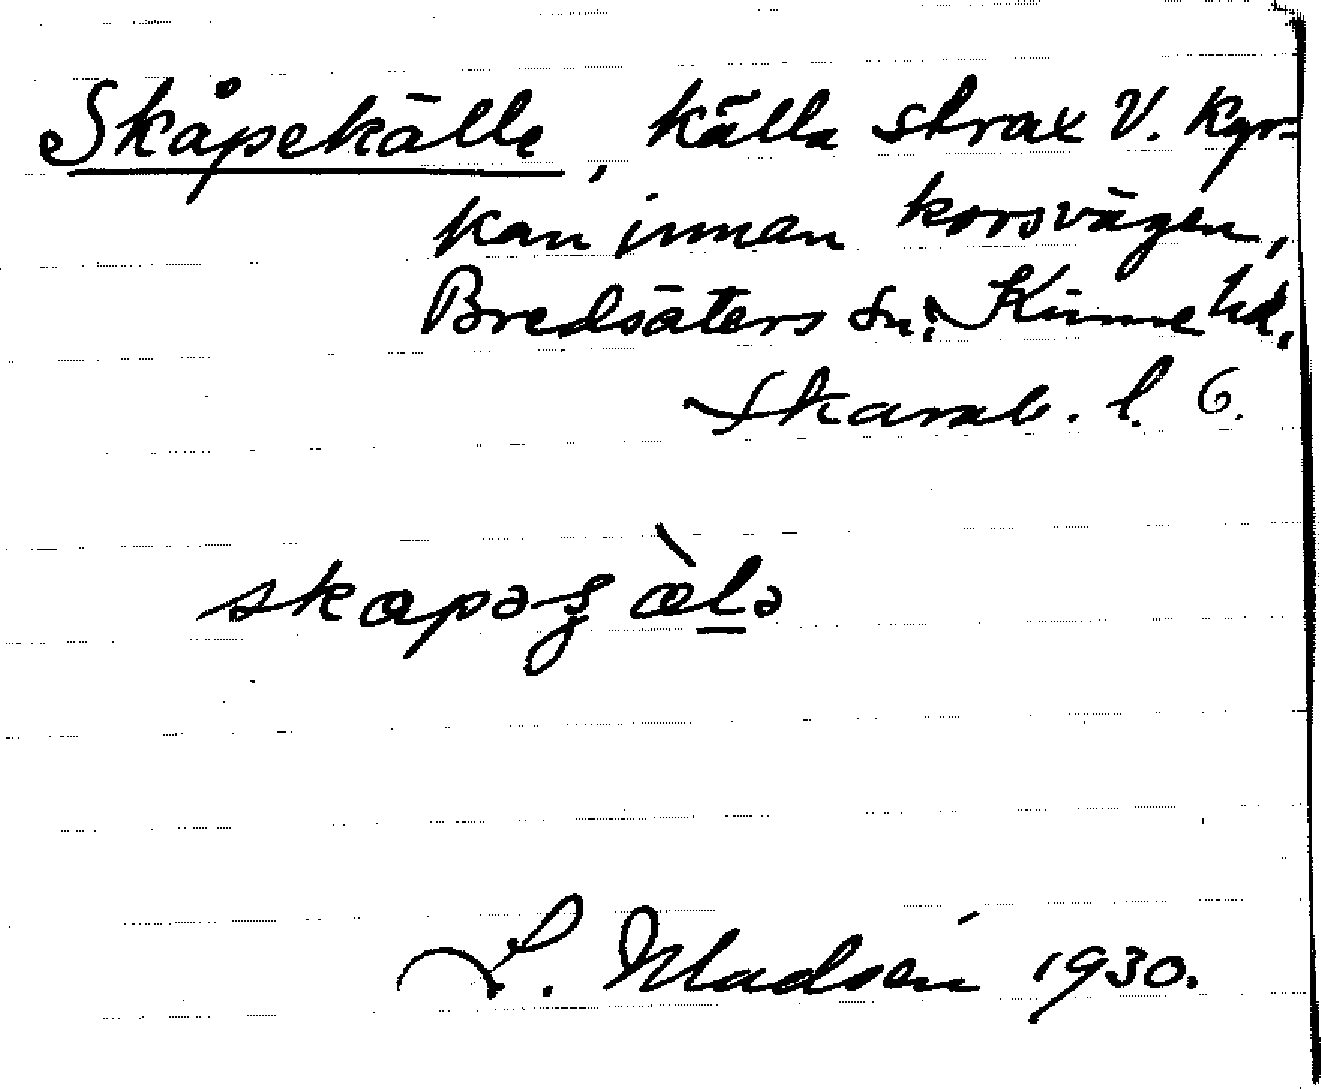 Skåpekälle, källa strax V. Kyr-
kan innan korsvägen,
Bredsäters sn. Kinne hd.
Skarab. l. G.
L. Madsén 1930.